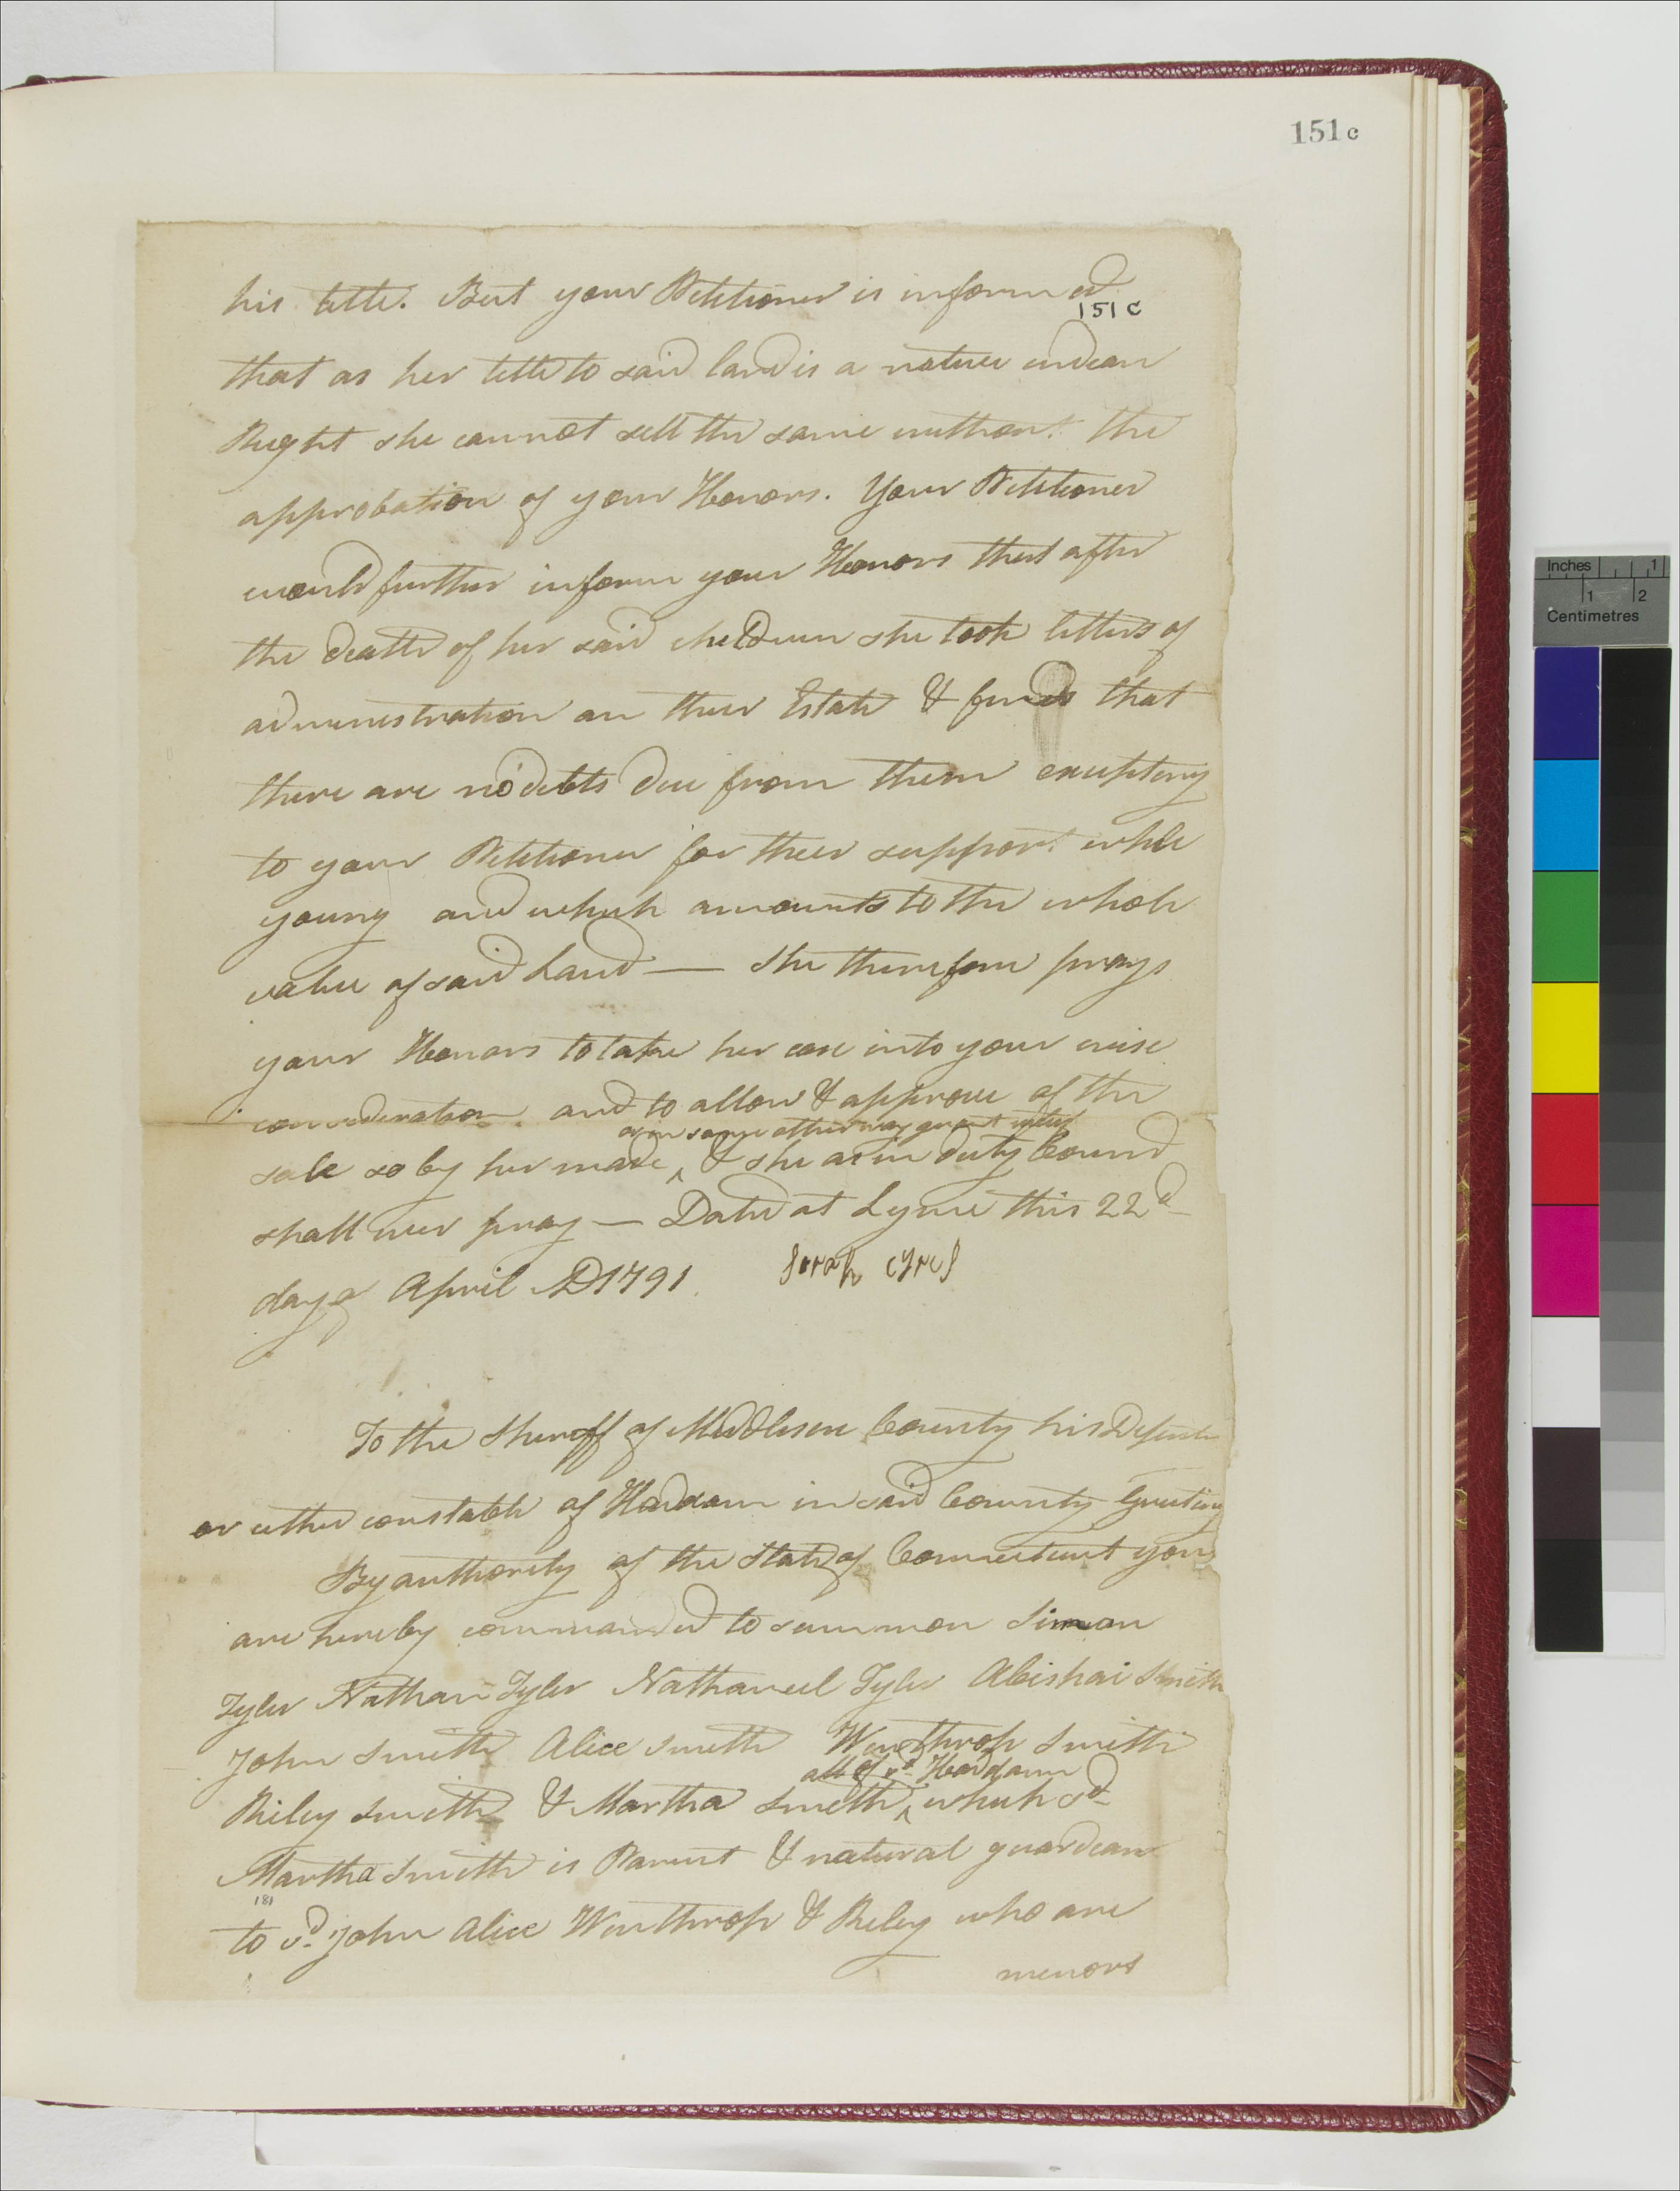 151c
his title. But your Petitioner is informed
151 C
that as her title to said land is a native indian
Right she cannot sell the same without the
approbation of your Honors. Your Petitioner
would further inform your Honors that after
the death of her said children she took letters of
administration on their Estate & finds that
there are no debts due from them excepting
to your Petitioner for their support while
young and which amounts to the whole
value of said Land — She therefore prays
your Honors to take her case into your wise
consideration. and to allow & approve of the
or in some other way grant relief
sale so by her made ^ & she as in duty bound
shall ever pray — Dated at Lyme this 22d
day of April AD 1791. Sarah Cyrus
To the Sheriff of Middlesex County his Deputy
or either constable of Haddam in said County Greeting
By authority of the State of Connecticut you
are hereby commanded to summon Simon
Tyler Nathan Tyler Nathaniel Tyler Abishai Smith
John Smith Alice Smith Winthrop Smith
all of sd Haddam
Riley Smith & Martha Smith ^ which sd
Martha Smith is Parent & natural guardian
181
to sd. John Alice Winthrop & Riley who are
menors
Inches 1
1 2
Centimetres